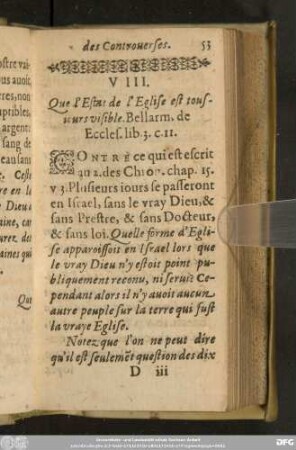 des Controuerses. 53
VIII.
Que l'Estat de l'Eglise est tous-
iours visible. Bellarm. de
Eccles. lib. 3. c. 11.
CONTRE ce qui est escrit
au 2. des Chron. chap. 15.
v 3. Plusieurs iours se passeront
en Israel, sans le vray Dieu, &
sans Prestre, & sans Docteur,
& sans loi. Quelle forme d'Egli-
se apparoissoit en Israel lors que
le vray Dieu n'y estoit point pu-
bliquement reconu, ni serui? Ce-
pendant alors il n'y auoit aucun
autre peuple sur la terre qui fust
la vraye Eglise.
Notez que l'on ne peut dire
qu'il est seulemẽt question des dix
D iii
ostre vai-
ous auoit
res, non
uptibles,
argent:
sang de
eau sans
. Ceste
re en la
Dieu a
aine, ca
uret. des
aines qui
Que